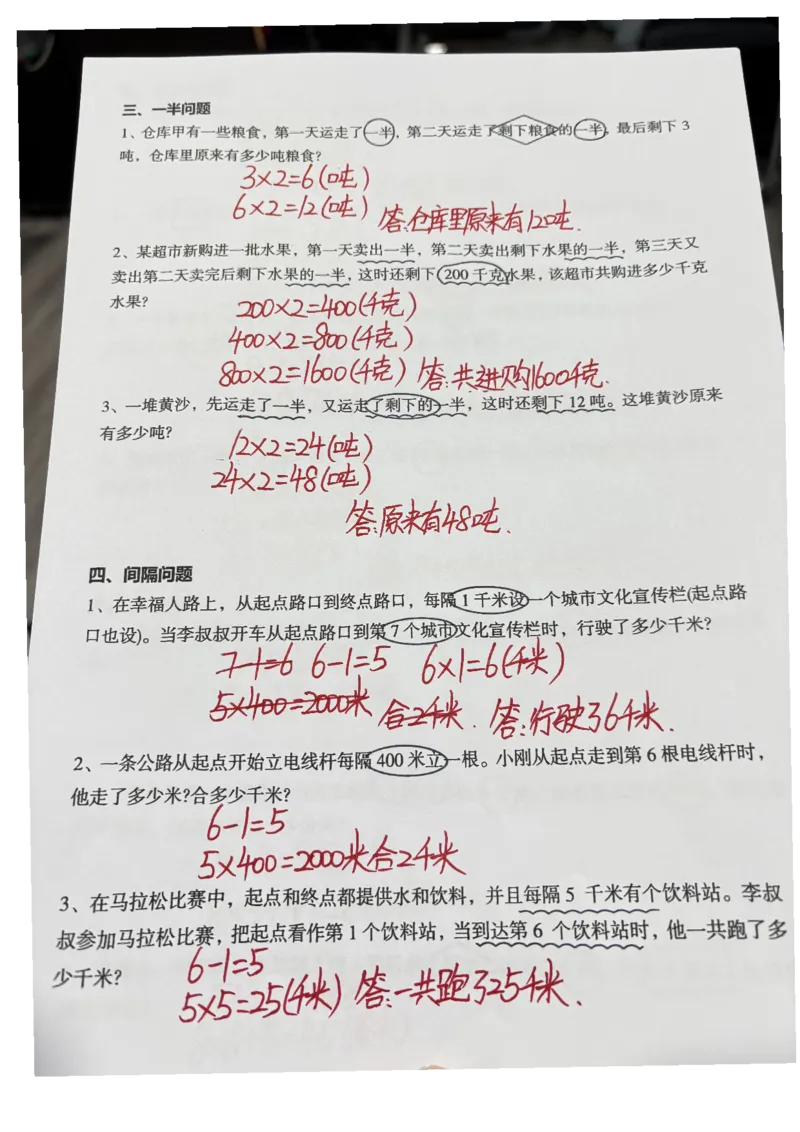 三、一半问题
1、仓库甲有一些粮食，第一天运走了一半，第二天运走了剩下粮食的一半，最后剩下 3
吨，仓库里原来有多少吨粮食?
3×2=6(吨)
6×2=12(吨) 答:仓库里原来有12吨.
2、某超市新购进一批水果，第一天卖出一半，第二天卖出剩下水果的一半，第三天又
卖出第二天卖完后剩下水果的一半，这时还剩下 200 千克水果，该超市共购进多少千克
水果?
200×2=400(千克)
400×2=800(千克)
800×2=1600(千克) 答:共进购1600千克.
3、一堆黄沙，先运走了一半，又运走了剩下的一半，这时还剩下 12 吨。这堆黄沙原来
有多少吨?
12×2=24(吨)
24×2=48(吨)
答:原来有48吨.
四、间隔问题
1、在幸福人路上，从起点路口到终点路口，每隔 1 千米设一个城市文化宣传栏(起点路
口也设)。当李叔叔开车从起点路口到第 7 个城市文化宣传栏时，行驶了多少千米?
7-1=6 6-1=5 6×1=6(千米)
5×400=2000米 合2千米. 答:行驶了6千米.
2、一条公路从起点开始立电线杆每隔 400 米立一根。小刚从起点走到第 6 根电线杆时，
他走了多少米?合多少千米?
6-1=5
5×400=2000米合2千米
3、在马拉松比赛中，起点和终点都提供水和饮料，并且每隔 5 千米有个饮料站。李叔
叔参加马拉松比赛，把起点看作第 1 个饮料站，当到达第 6 个饮料站时，他一共跑了多
少千米?
6-1=5
5×5=25(千米) 答:一共跑了25千米.